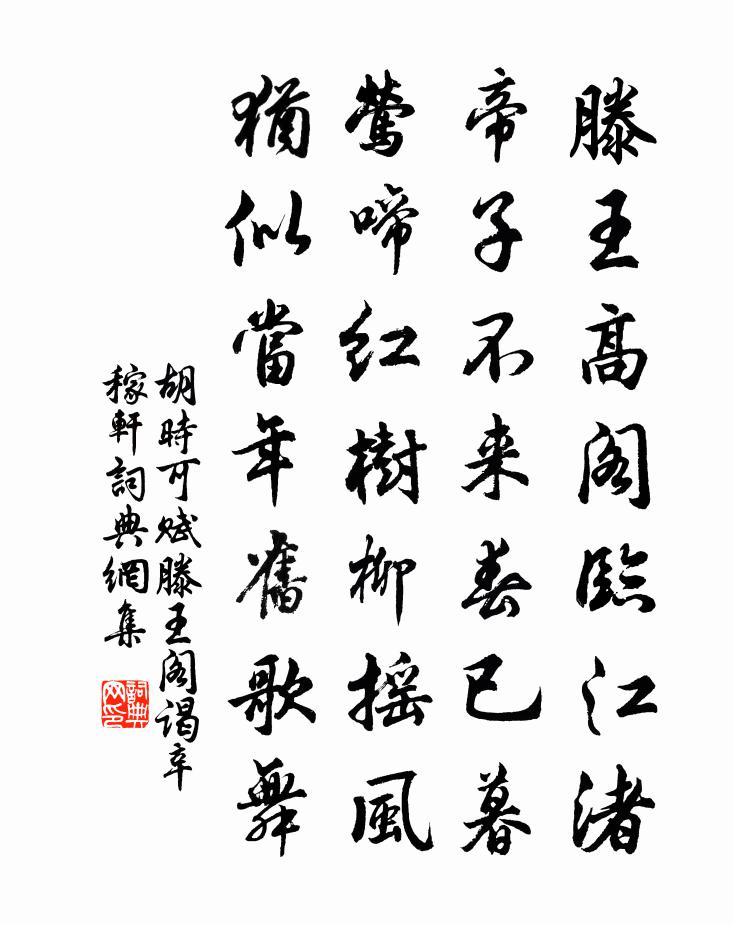 滕王高阁臨江渚
帝子不来春已暮
鶯啼紅樹柳摇風
猶似當年舊歌舞
胡時可赋滕王阁謁辛
稼軒詞典網集
詞典网印